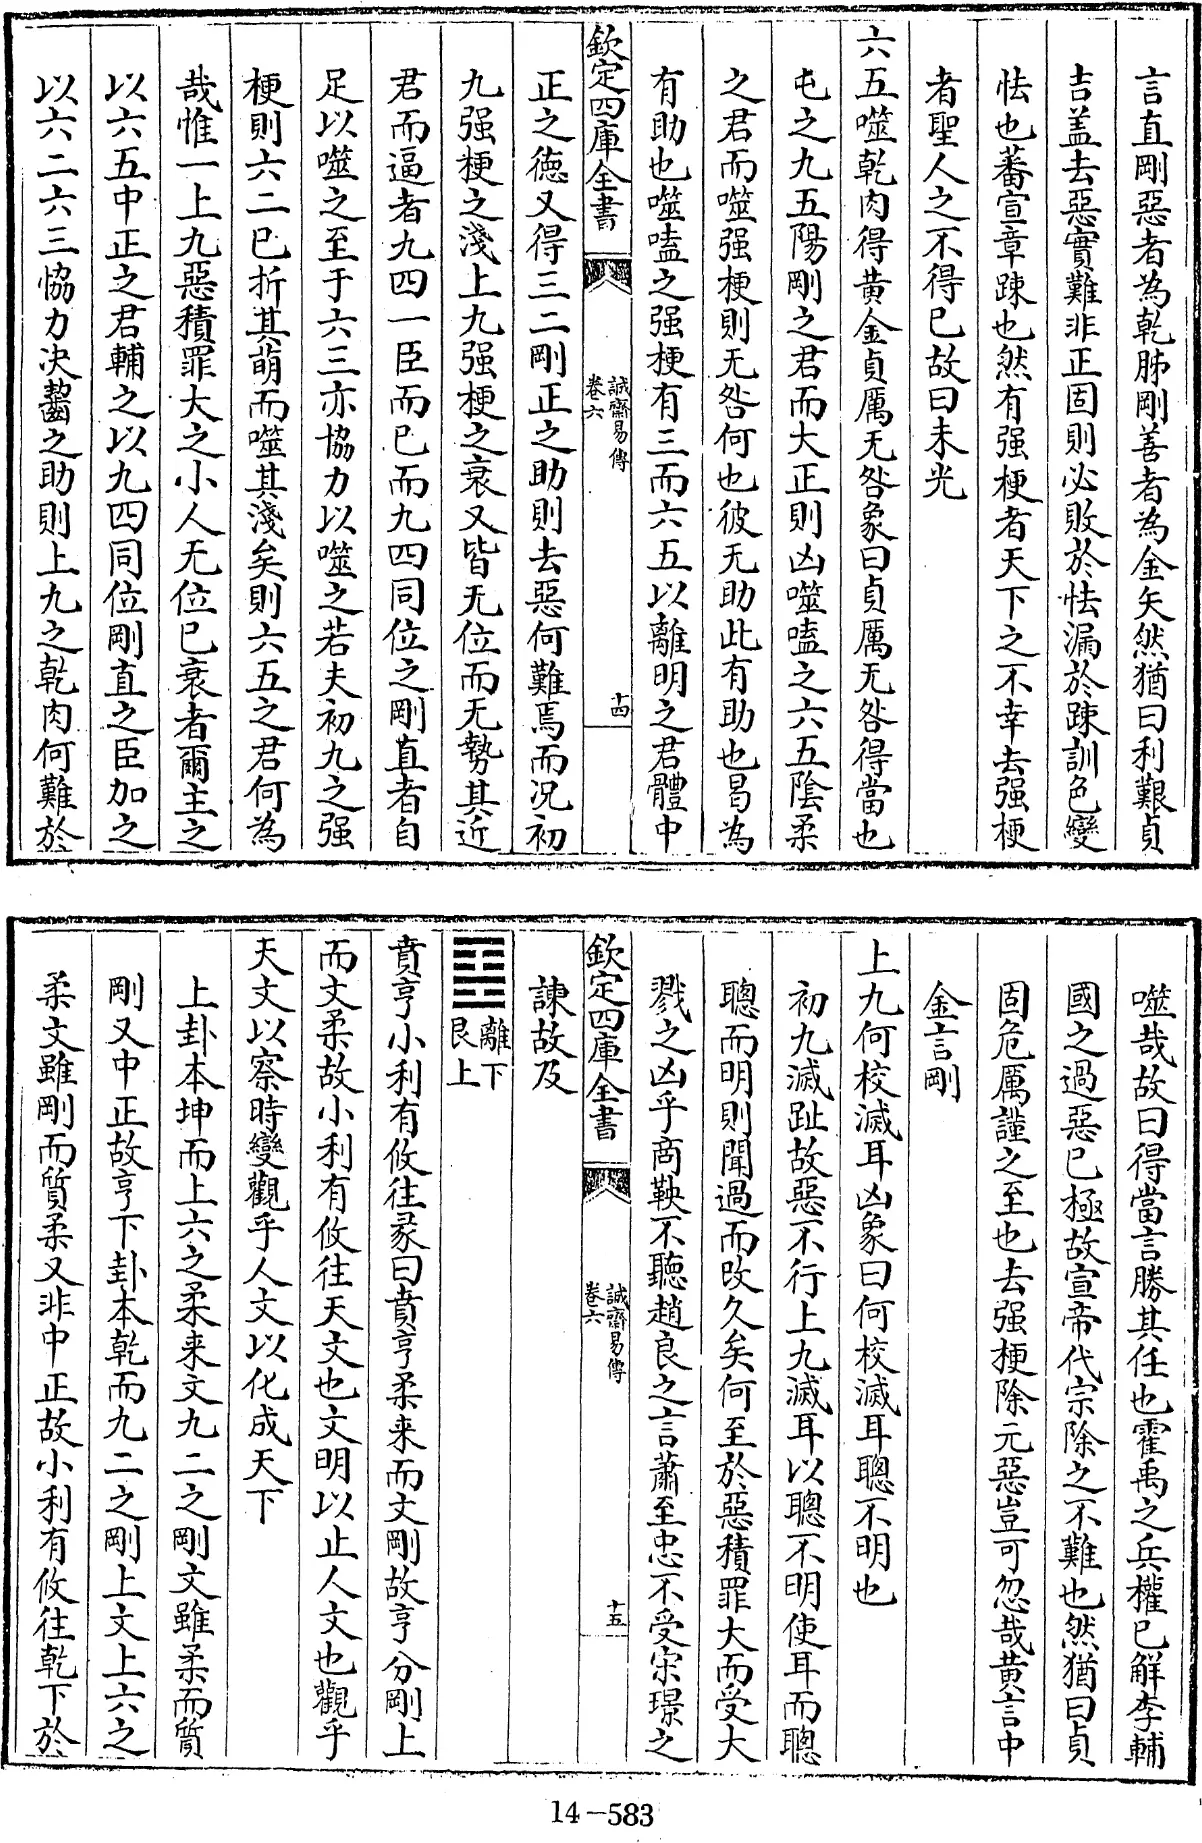 言直剛惡者為乾胏剛善者為金矢然猶曰利艱貞
吉盖去惡實難非正固則必敗於怯漏於踈訓色變
怯也蕃宣章踈也然有强梗者天下之不幸去强梗
者聖人之不得已故曰未光
六五噬乾肉得黄金貞厲无咎象曰貞厲无咎得當也
屯之九五陽剛之君而大正則凶噬嗑之六五陰柔
之君而噬强梗則无咎何也彼无助此有助也曷為
有助也噬嗑之强梗有三而六五以離明之君體中
欽定四庫全書
誠齋易傳
卷六
十四
正之徳又得三二剛正之助則去惡何難焉而况初
九强梗之淺上九强梗之衰又皆无位而无勢其近
君而逼者九四一臣而已而九四同位之剛直者自
足以噬之至于六三亦協力以噬之若夫初九之强
梗則六二已折其萌而噬其淺矣則六五之君何為
哉惟一上九惡積罪大之小人无位已衰者爾主之
以六五中正之君輔之以九四同位剛直之臣加之
以六二六三恊力决齧之助則上九之乾肉何難於
噬哉故曰得當言勝其任也霍禹之兵權已解李輔
國之過惡已極故宣帝代宗除之不難也然猶曰貞
固危厲謹之至也去强梗除元惡豈可忽哉黄言中
金言剛
上九何校滅耳凶象曰何校滅耳聰不明也
初九滅趾故惡不行上九滅耳以聰不明使耳而聰
聰而明則聞過而改久矣何至於惡積罪大而受大
戮之凶乎商鞅不聽趙良之言蕭至忠不受宋璟之
欽定四庫全書
誠齋易傳
卷六
十五
諫故及
䷕離下
艮上
賁亨小利有攸往彖曰賁亨柔来而文剛故亨分剛上
而文柔故小利有攸往天文也文明以止人文也觀乎
天文以察時變觀乎人文以化成天下
上卦本坤而上六之柔来文九二之剛文雖柔而質
剛又中正故亨下卦本乾而九二之剛上文上六之
柔文雖剛而質柔又非中正故小利有攸往乾下於
14-583